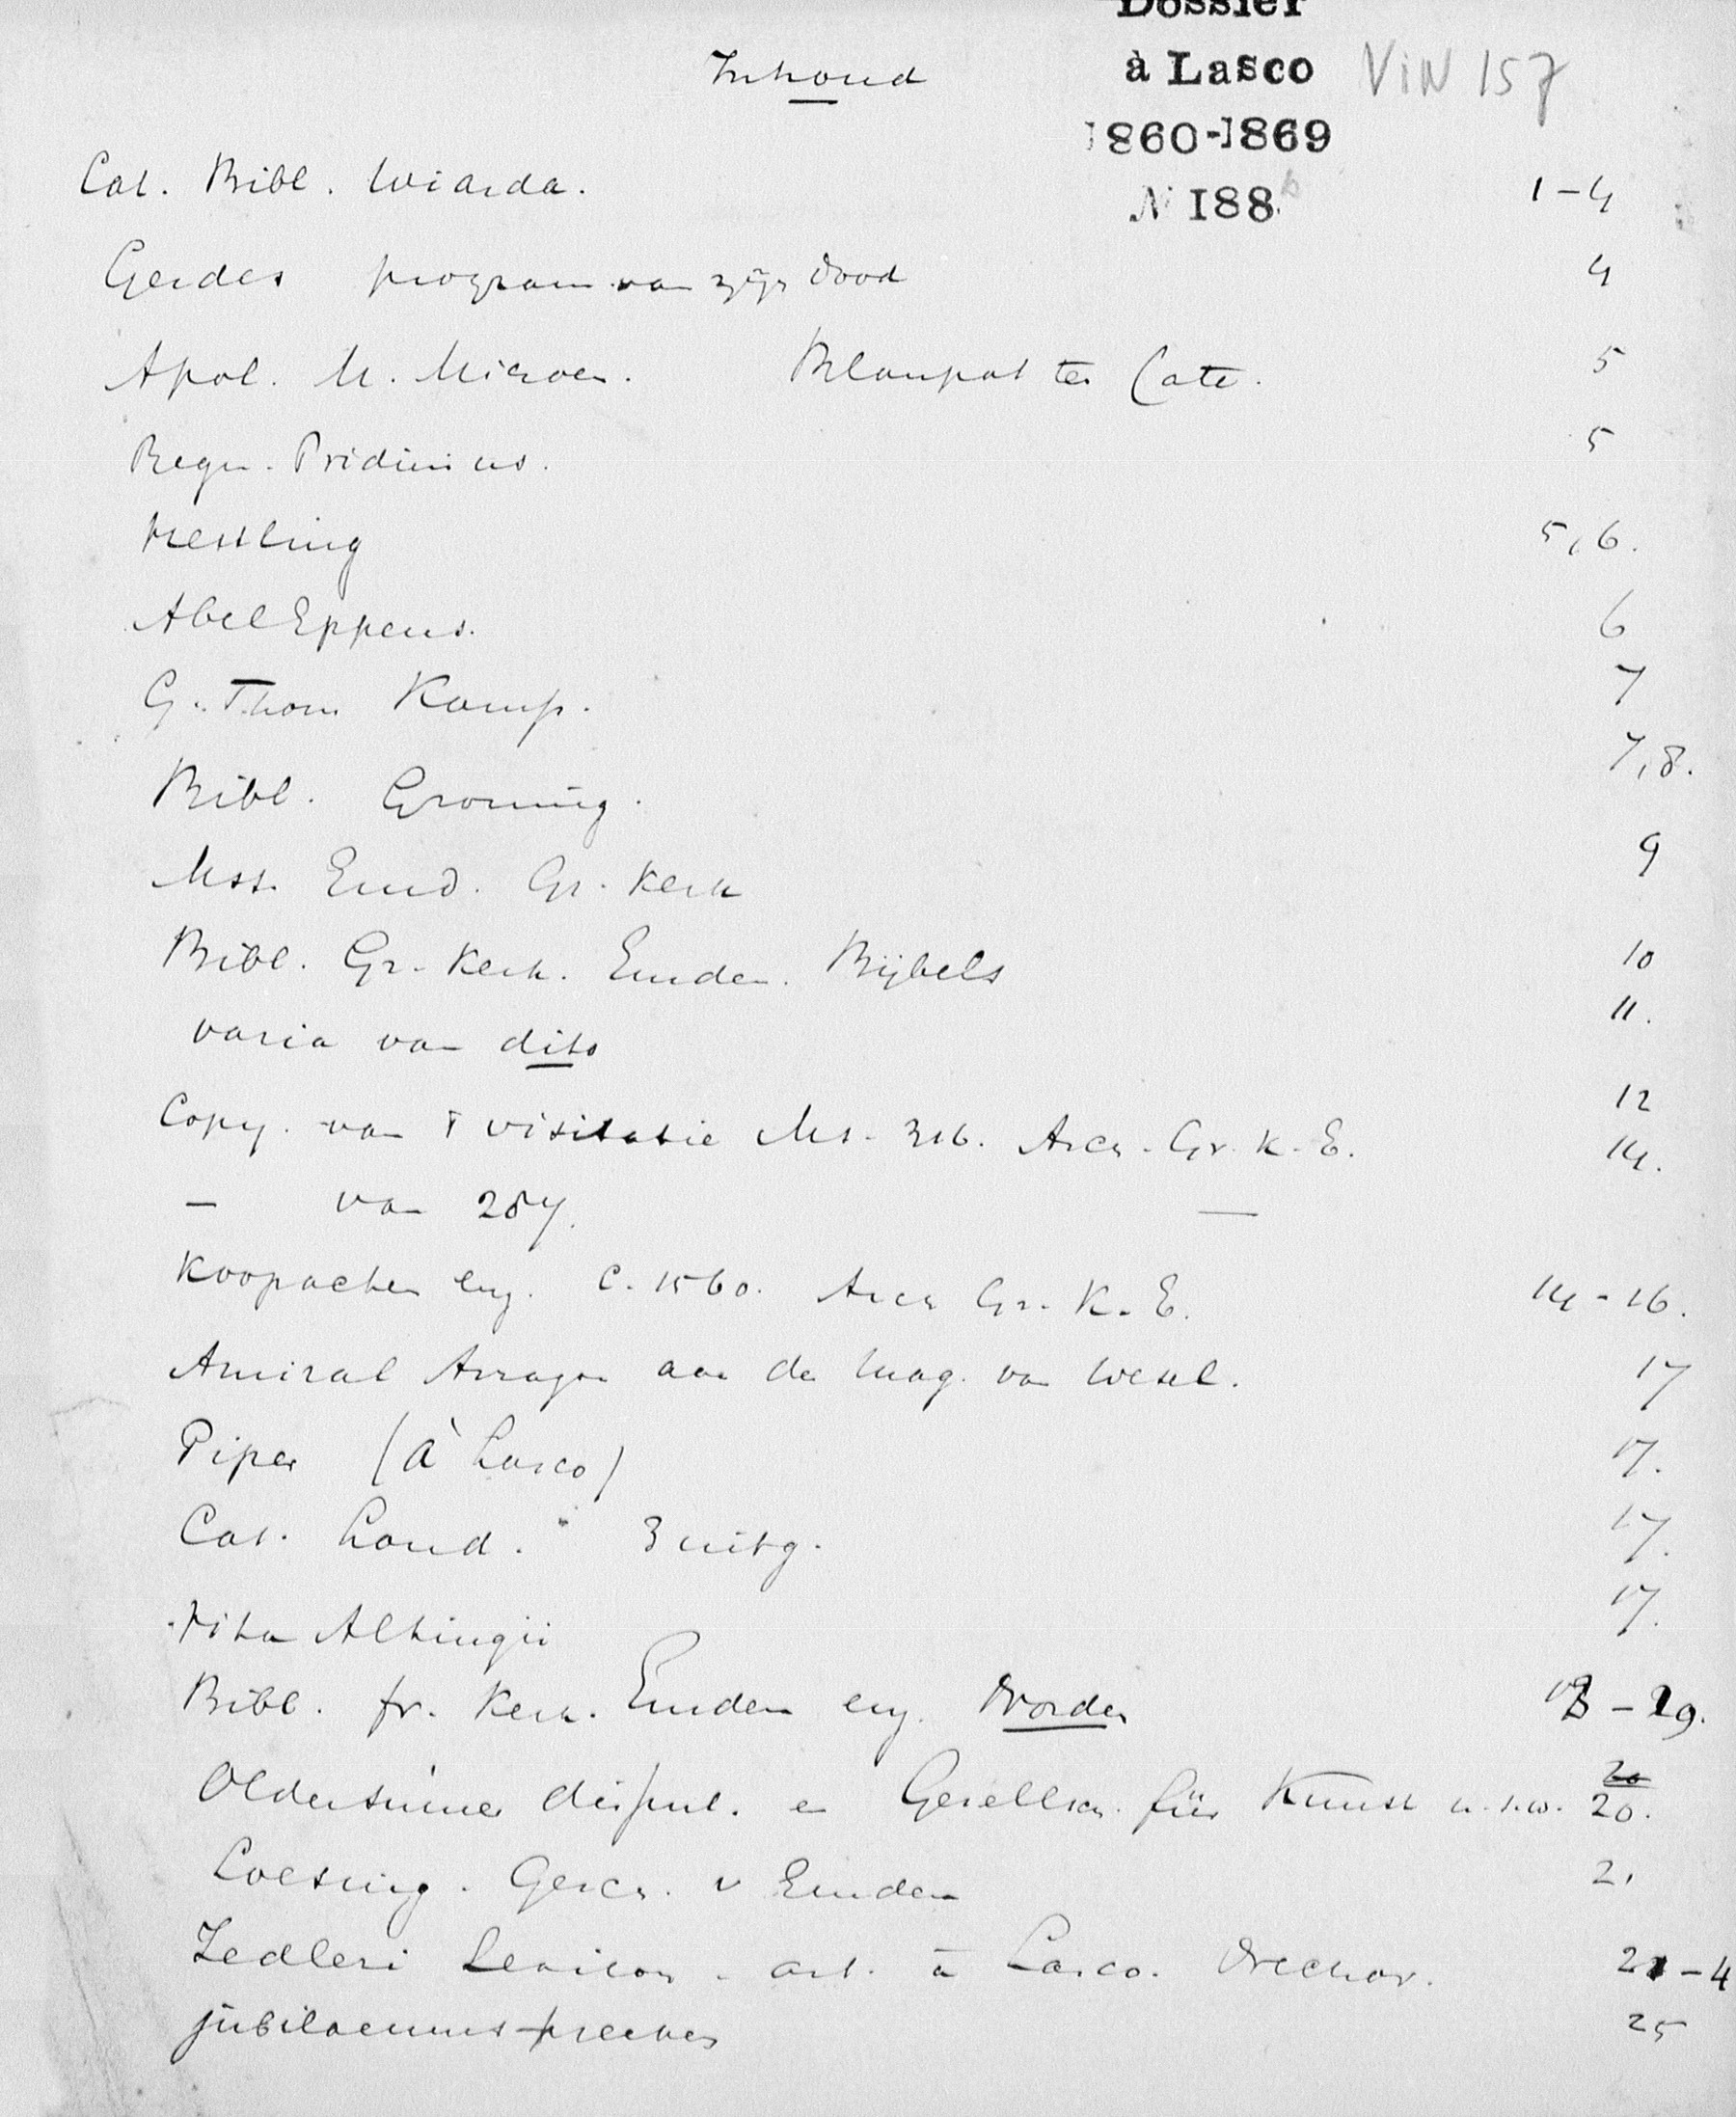 Dossier
Inhoud
à Lasco
VIN 157
1860-1869
N 188.b
Cat. Bibl. Wiarda. 1-4
Gerdes program van zijn dood 4
Apol. M. Micron. Blaupot ten Cate. 5
Regn. Pridinius. 5
5,6.
Abel Eppens. 6
G. Thom Kamp. 7
Bibl. Groning. 7,8.
Mss. Emd. Gr. Kerk 9
Bibl. Gr. Kerk. Emden. Bijbels 10
varia van dito 11.
Copy. van visitatie Ms. 316. Arch. Gr. K. E. 12
— van 257. — 14.
eng. c. 1560. Arch Gr. K. E. 14-16.
Amiral Arragon aan de mag. van Wesel. 17
Piper (à Lasco) 17.
Cat. Lond. 3 uitg. 17.
Vita Altingii 17.
Bibl. fr. Kerk. Emden en Norden 18-19.
Oldersumer disput. en Gesellsch. für Kunst u.s.w. 20.
Loesing. Gesch. v Emden 21
Zedleri Lexicon. art. à Lasco. 21-4
jubilaeums preeken 25